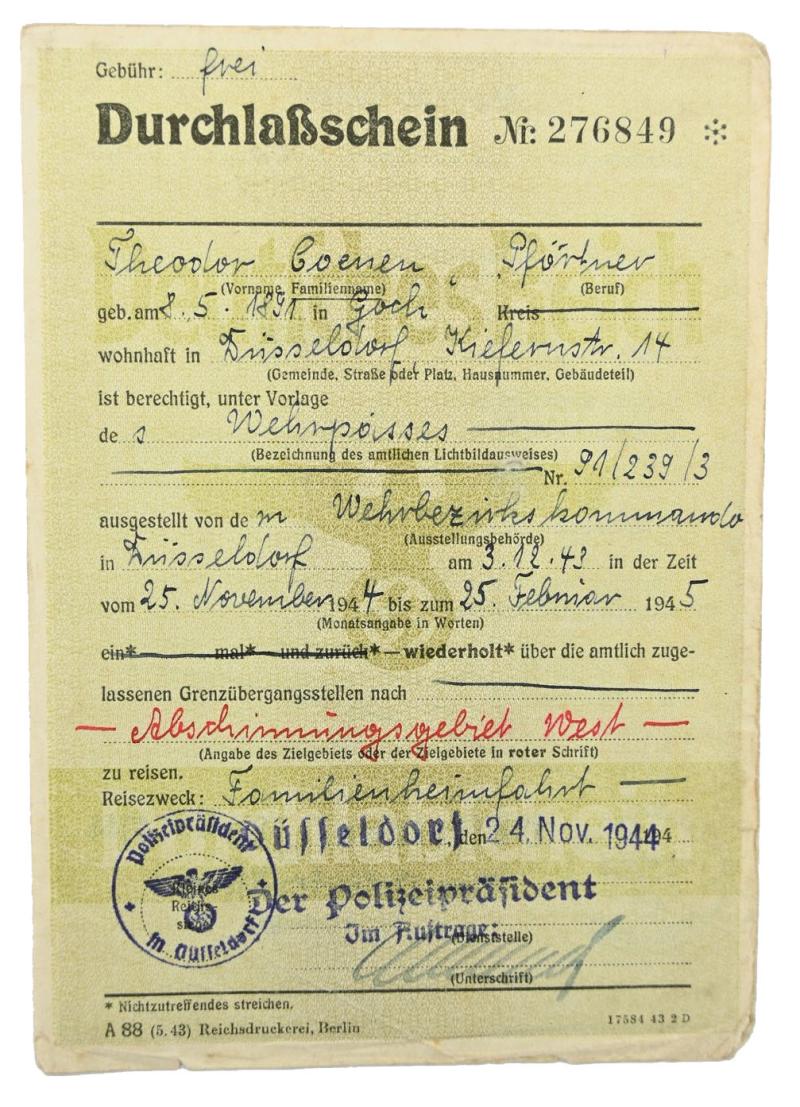 Gebühr: frei
Durchlaßschein Nr. 276849
Theodor Coenen, Pförtner
(Vorname, Familienname) (Beruf)
geb. am 8. 5. 1891 in Goch Kreis
wohnhaft in Düsseldorf, Kiefernstr. 14
(Gemeinde, Straße oder Platz, Hausnummer, Gebäudeteil)
ist berechtigt, unter Vorlage
de s Wehrpasses
(Bezeichnung des amtlichen Lichtbildausweises)
Nr. 91/239/3
ausgestellt von de m Wehrbezirkskommando
(Ausstellungsbehörde)
in Düsseldorf am 3.12.43 in der Zeit
vom 25. November 1944 bis zum 25. Februar 1945
(Monatsangabe in Worten)
ein* mal* und zurück* — wiederholt* über die amtlich zuge-
lassenen Grenzübergangsstellen nach
— Abschirmungsgebiet West —
(Angabe des Zielgebiets oder der Zielgebiete in roter Schrift)
zu reisen.
Reisezweck: Familienheimfahrt —
Düsseldorf, den 24. Nov. 1944 194
Der Polizeipräsident
Im Auftrage:
(Dienststelle)
(Unterschrift)
Polizeipräsident
in Düsseldorf
Kleines
Reichs-
siegel
* Nichtzutreffendes streichen.
A 88 (5. 43) Reichsdruckerei, Berlin
17584 43 2 D